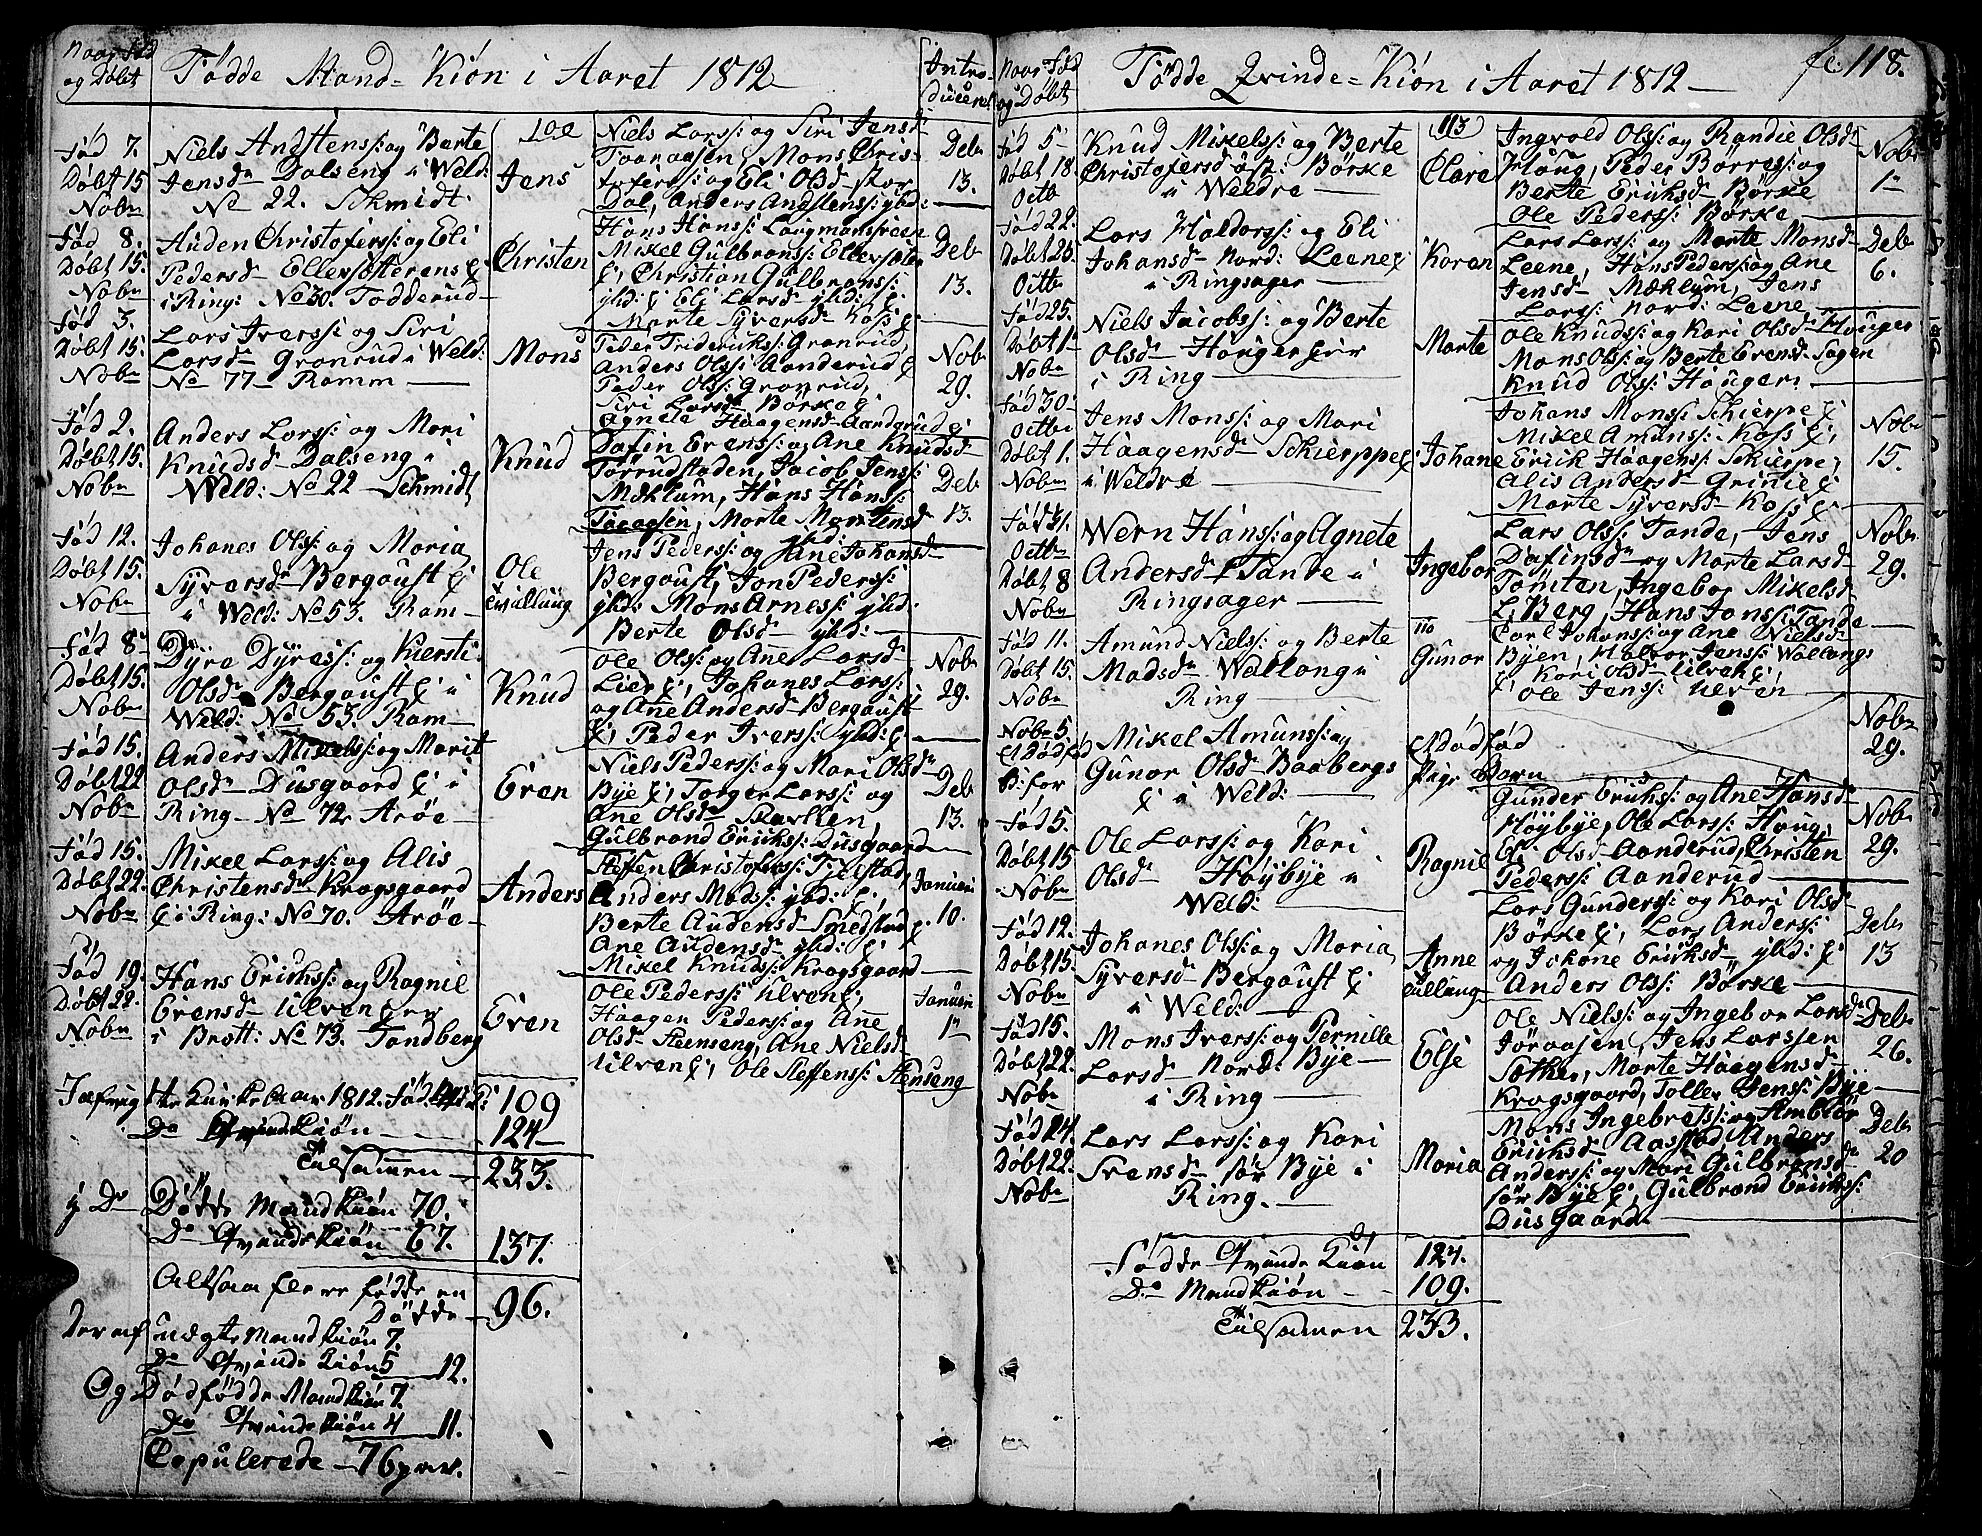 Naar Fød
og Døbt
Tødde Mand-Kión i Aaret 1812
Intro-
duceret
Fød 7.
Døbt 15
Nobr
Niels Andstenss: og Berte
Jensdr Dalseng i Weld:
No 22. Schmidt.
100
Jens
Niels Larss: og Siri Jensdr
Toaraasen, Mons Chris-
tofferss: og Eli Olsdr Stor
Dal, Anders Andstenss: ybd:
Debr
13.
Fød 8.
Døbt 15.
Nobr
Auden Christoferss: og Eli
Pedersdr Ellevsæterens E
i Ring: No 30. Todderud
Christen
Hans Hanss: Laugmansreen
Mikel Gulbranss: Ellevsæter
E, Christian Gulbranss:
ybd: E Eli Larsdr ybd: E
Marte Syversdr Koss E
Debr
13.
Fød 3.
Døbt 15.
Nobr
Lars Iverss: og Siri
Larsdr Gronrud i Weld:
No 77 Ramm
Mons
Peder Frideriks: Gronrud,
Anders Olss: Aanderud E
Peder Olss: Gronrud,
Siri Larsdr Börke E
Agnete Haagensd- Aandrud E
Nobr
29.
Fød 2.
Døbt 15.
Nobr
Anders Larss: og Mari
Knudsdr Dalseng i
Weld: No 22 Schmidt
Knud
Dafin Evenss: og Ane Knudsdr
Torrudstaden, Jacob Jenss:
Mæhlum, Hans Hanss:
Taaasen, Marte Mortensd
ybd:
Debr
13.
Fød 12.
Døbt 15.
Nobr
Johanes Olss: og Maria
Syversdr Bergaust E
i Weld: No 53. Ram
Ole
Tvilling
Jens Pederss: og Ane Johansdr
Bergaust, Jon Pederss:
ybd: Mons Arness: ybd:
Berte Olsd- ybd:
Fød 8
Døbt 15.
Nobr
Dÿre Dÿress: og Kiersti
Olsdr Bergaust E i
Weld: No 53. Ram
Knud
Ole Olss: og Ane Larsdr
Lier E, Johanes Larss:
og Ane Andersd Bergaust
E, Peder Iverss: ybd: E
Nobr
29.
Fød 15.
Døbt 22
Nobr
Anders Mikelss: og Marit
Olsdr Dusgaard E i
Ring No 72 Arøe
Even
Niels Pederss: og Mari Olsdr
Bye E, Torger Larss: og
Ane Olsdr Skarllen
Gulbrand Erickss: Dusgaard
Debr
13.
Fød 15.
Døbt 22.
Nobr
Mikel Larss: og Alis
Christensdr Kragsgaard
E i Ring: No 70. Arøe
Anders
Steffen Christoferss: Tjelstad,
Anders Madss: ybd: E.
Berte Audensdr Smedstad E
Ane Audensdr ybd: E
Mikel Knudss: Kragsgaard
Januari
10.
Fød 19.
Døbt 22.
Nobr
Hans Erickss: og Ragnil
Evensdr Ulven E
i Brøtt: No 73. Tandberg
Even
Ole Pederss: Ulven E,
Haagen Pederss: og Ane
Olsdr Steenseng, Ane Nielsdr
Ulven E, Ole Steffenss: Stenseng
Januari
1
Kirke Aar 1812. Fød 109
Do Qvindekiøn 124
Tilsamen 233.
Do Døde Mandkiøn 70.
Do Qvindekiøn 67. 137.
Altsaa flere fødde en
Dødde 96.
Deraf uægte Mandkiøn 7.
Do Qvindekiøn 5 12.
Og Dødfødde Mandkiøn 7.
Do Qvindekiøn 4 11.
Copulerede 76 par.
Naar Fød
og Døbt
Tødde Qvinde-Kión i Aaret 1812
fl: 118.
Fød 5
Døbt 18
Octb
Knud Mikelss: og Berte
Christofersd öst: Börke
i Weldre
113
Clare
Ingvold Olss: og Randie Olsdr
Houg, Peder Börress: og
Berte Ericksd Börke
Ole Pederss: Börke
Nobr
1
Fød 22.
Døbt 25.
Octb
Lars Haldorss: og Eli
Johansd Nord: Leene E
i Ringsager
Karen
Lars Larss: og Marte Monsdr
Leene, Hans Pederss: og Ane
Jensd Mæhlum, Jens
Larss: Nord: Leene
Debr
6.
Fød 25.
Døbt 1
Nobr
Niels Jacobss: og Berte
Olsdr Hauger
i Ring
Marte
Ole Knudss: og Kari Olsdr Houger
Mons Olss: og Berte Evensd Sagen
Knud Olss: Hauger
Fød 30
Octbr
Døbt 1.
Nobr
Jens Monss: og Mari
Haagensd Schierppe E
i Weldre
Johane
Johans Monss: Schierpe E
Mikel Amunss: Koss E,
Erick Haagens: Skierpe,
Alis Andersdr Grinie E
Marte Syversd Koss E
Nobr
15.
Fød 31.
Octbr
Døbt 8
Nobr
Wern Hanss: og Agnete
Andersdr Tande i
Ringsager
Ingebor
Lars Olss: Tande, Jens
Dafinsdr og Marte Larsdr
Tomten, Ingebor Mikelsd
L: Berg, Hans Jonss: Tande
Nobr
29.
Fød 11.
Døbt 15.
Nobr
Amund Nielss: og Berte
Madsdr Wallong i
Ring
110
Gunor
Carl Johanss: og Ane Nielsdr
Byen, Halvor Jenss: Wallong
E Kari Olsdr Ulven E
Ole Jenss: Ulven
Nobr 5.
Et Dødfød
Mikel Amunss: og
Gunor Olsdr Baabergs
E i Weld:
Et Dødfød
Pige Barn
Nobr
29.
Fød 5.
Døbt 15
Nobr
Ole Larss: og Kari
Olsdr Høÿbÿe i
Weld:
Ragnil
Gunder Erickss: og Ane Hansdr
Høÿbye, Ole Larss: Houg,
Eli Olsdr Aanderud, Christen
Pederss: Aanderud
Nobr
29.
Fød 12.
Døbt 15.
Nobr
Johanes Olss: og Maria
Syversdr Bergaust E
i Weld:
Anne
Tvilling
Lars Gunderss: og Kari Olsdr
Börke E, Lars Anderss:
og Johane Ericksd ybd: E
Anders Olss: Börke
Debr
13
Fød 15.
Døbt 22.
Nobr
Mons Iverss: og Pernille
Larsdr Nord: Bye
i Ring
Else
Ole Nielss: og Ingebor Larsdr
Jöraasen, Jens Larssen
Sæther, Marte Haagensdr
Kragsgaard, Tollev Jenss: Bÿe
Debr
26.
Fød 24.
Døbt 22.
Nobr
Lars Larss: og Kari
Svensdr Sör Bye i
Ring.
Maria
Mons Ingebress: og Amblør
Ericksdr Aasstad, Anders
Anderss: og Mari Gulbransdr
Sör Bye E, Gulbrand Erickss:
Dusgaard
Debr
20
Fødde Qvinde Kiøn 124.
Do Mandkiøn 109.
Tilsamen 233.